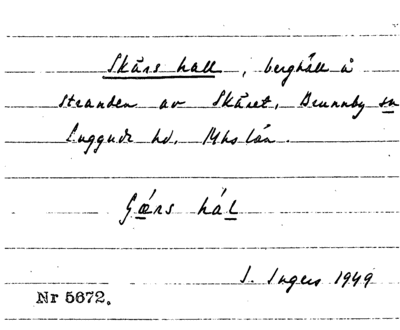 Skårs hall, berghäll å
stranden av Skäret, Brunnby sn
Luggude hd. Mhs län.
hál
I. Ingers 1949
Nr 5672.